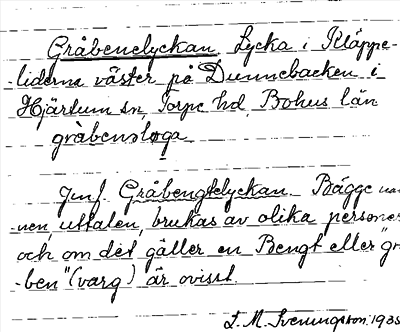 Gråbenelyckan Lycka i Kläppe-
-liderna väster på Dunnebacken i
Hjärtum sn, Torpe hd, Bohus län
gråbensloga
Jmf. Gråbengtelyckan Bägge nam
nen, uttalen, brukas av olika personer
och om det gäller en Bengt eller "grå
-ben" (varg) är ovisst.
L. M. Svenungsson 1935